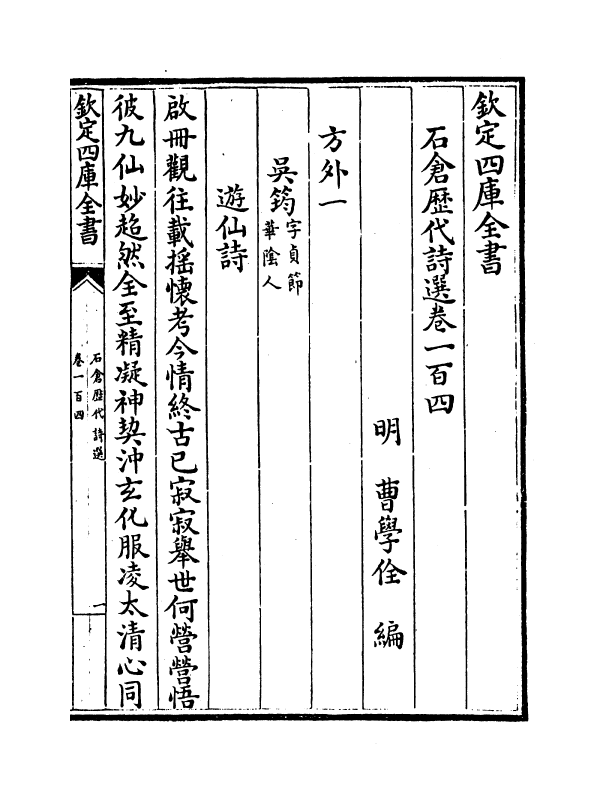 欽定四庫全書
石倉歷代詩選卷一百四
明 曹學佺 編
方外一
吳筠字貞節
華陰人
遊仙詩
啟冊觀往載搖懷考今情終古已寂寂舉世何營營悟
彼九仙妙超然全至精凝神契沖玄化服凌太清心同
欽定四庫全書
石倉歷代詩選
卷一百四
一